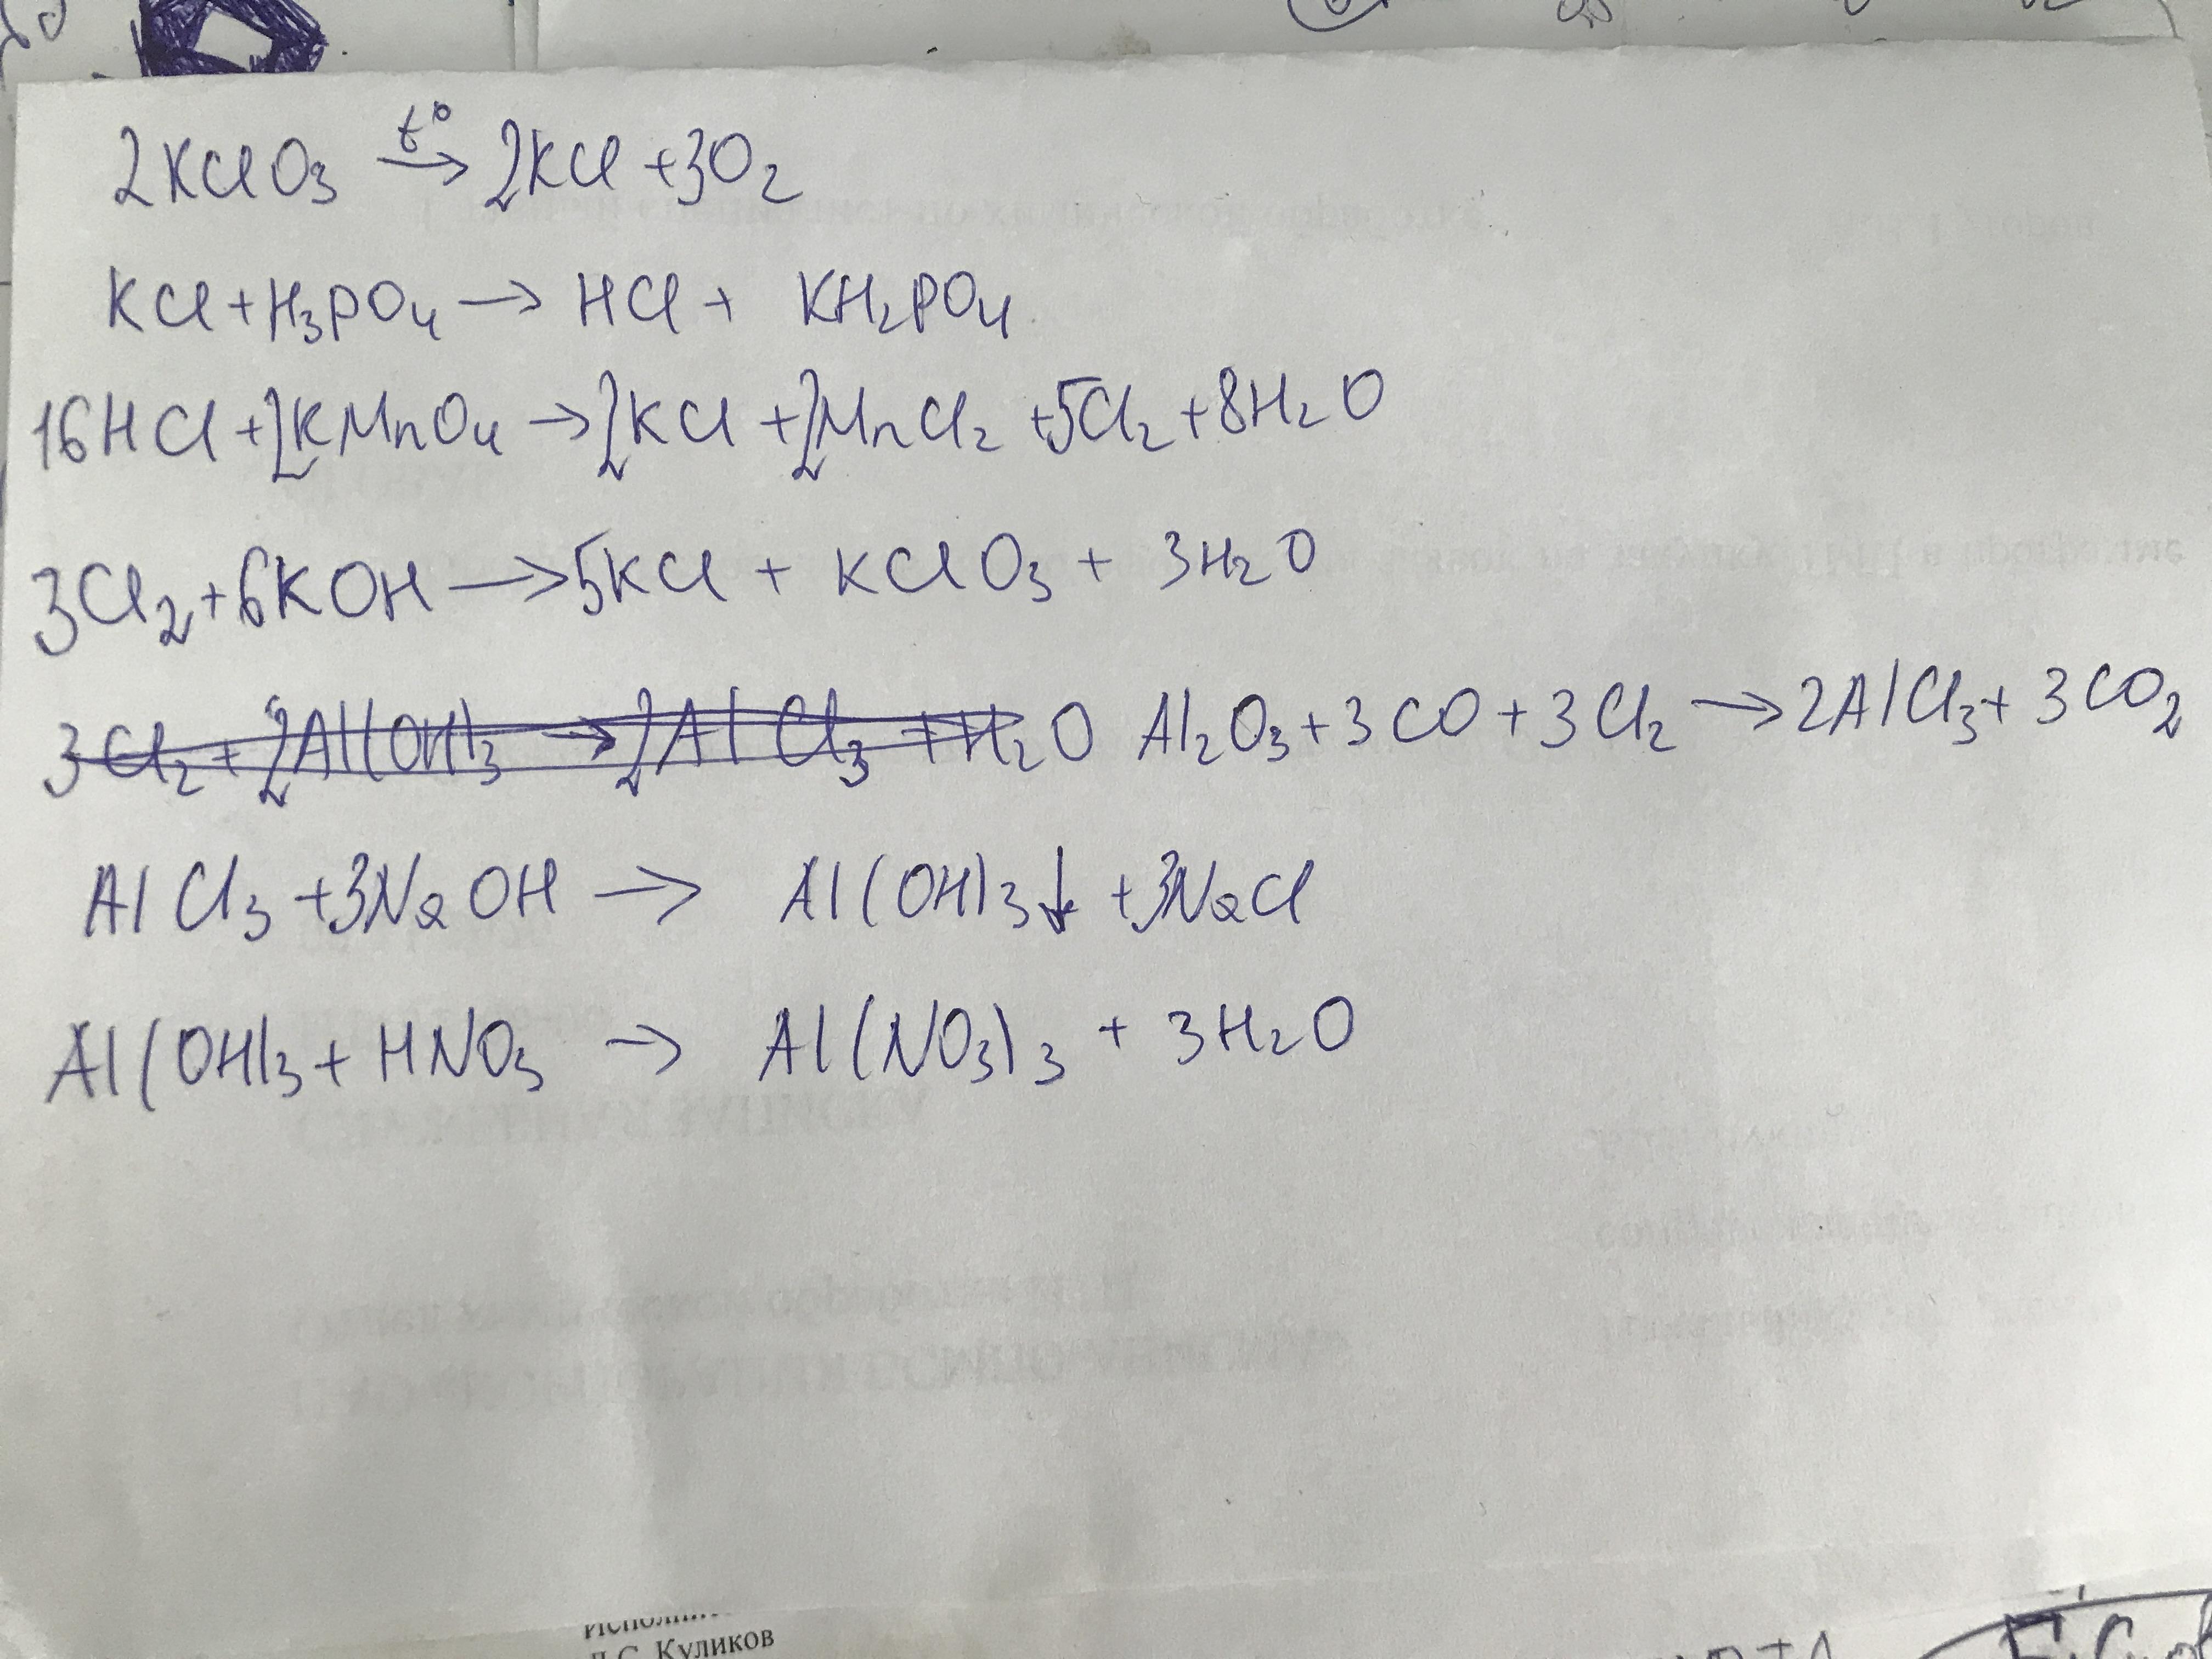 2KClO₃ t°→ 2KCl + 3O₂
KCl + H₃PO₄ → HCl + KH₂PO₄
16HCl + 2KMnO₄ → 2KCl + 2MnCl₂ + 5Cl₂ + 8H₂O
3Cl₂ + 6KOH → 5KCl + KClO₃ + 3H₂O
3Cl₂ + 2Al(OH)₃ → 2AlCl₃ + H₂O Al₂O₃ + 3CO + 3Cl₂ → 2AlCl₃ + 3CO₂
AlCl₃ + 3NaOH → Al(OH)₃↓ + 3NaCl
Al(OH)₃ + HNO₃ → Al(NO₃)₃ + 3H₂O
Куликов